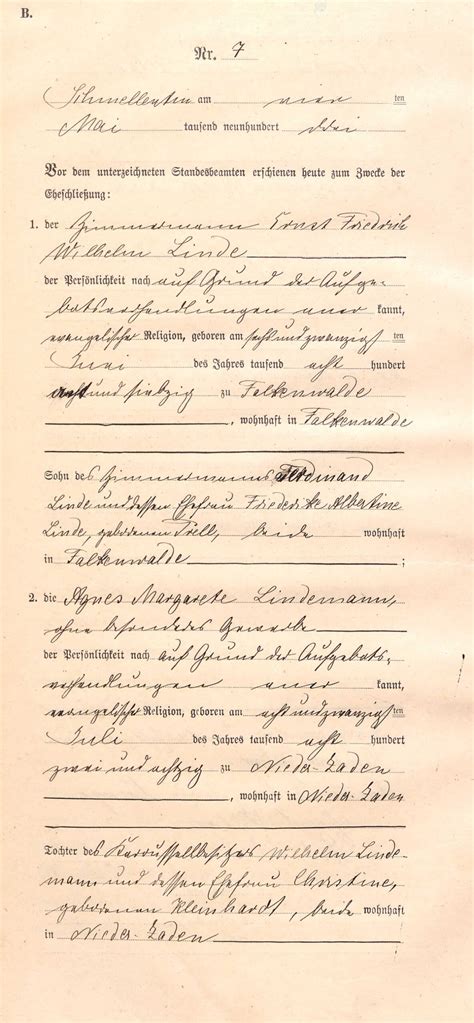 B.
Nr. 7
Schmellentin am vier ten
Mai tausend neunhundert drei
Vor dem unterzeichneten Standesbeamten erschienen heute zum Zwecke der
Eheschließung:
1. der Zimmermann Ernst Friedrich
Wilhelm Linde
der Persönlichkeit nach auf Grund der Aufge-
botsverhandlungen aner kannt,
evangelischer Religion, geboren am sechsundzwanzigst ten
des Jahres tausend acht hundert
acht und siebzig zu Falkenwalde
, wohnhaft in Falkenwalde
Sohn des Zimmermanns Ferdinand
Linde und dessen Ehefrau Friederike Albertine
Linde, geborenen Trell, beide wohnhaft
in Falkenwalde ;
2. die Agnes Margarete Lindemann,
ohne besonderes Gewerbe
der Persönlichkeit nach auf Grund der Aufgebots-
verhandlungen aner kannt,
evangelischer Religion, geboren am achtundzwanzigst ten
Juli des Jahres tausend acht hundert
zwei und achtzig zu Nieder-Zaden
, wohnhaft in Nieder-Zaden
Tochter des Karussellbesitzers Wilhelm Linde-
mann und dessen Ehefrau Christine,
geborenen Kleinhardt, beide wohnhaft
in Nieder-Zaden